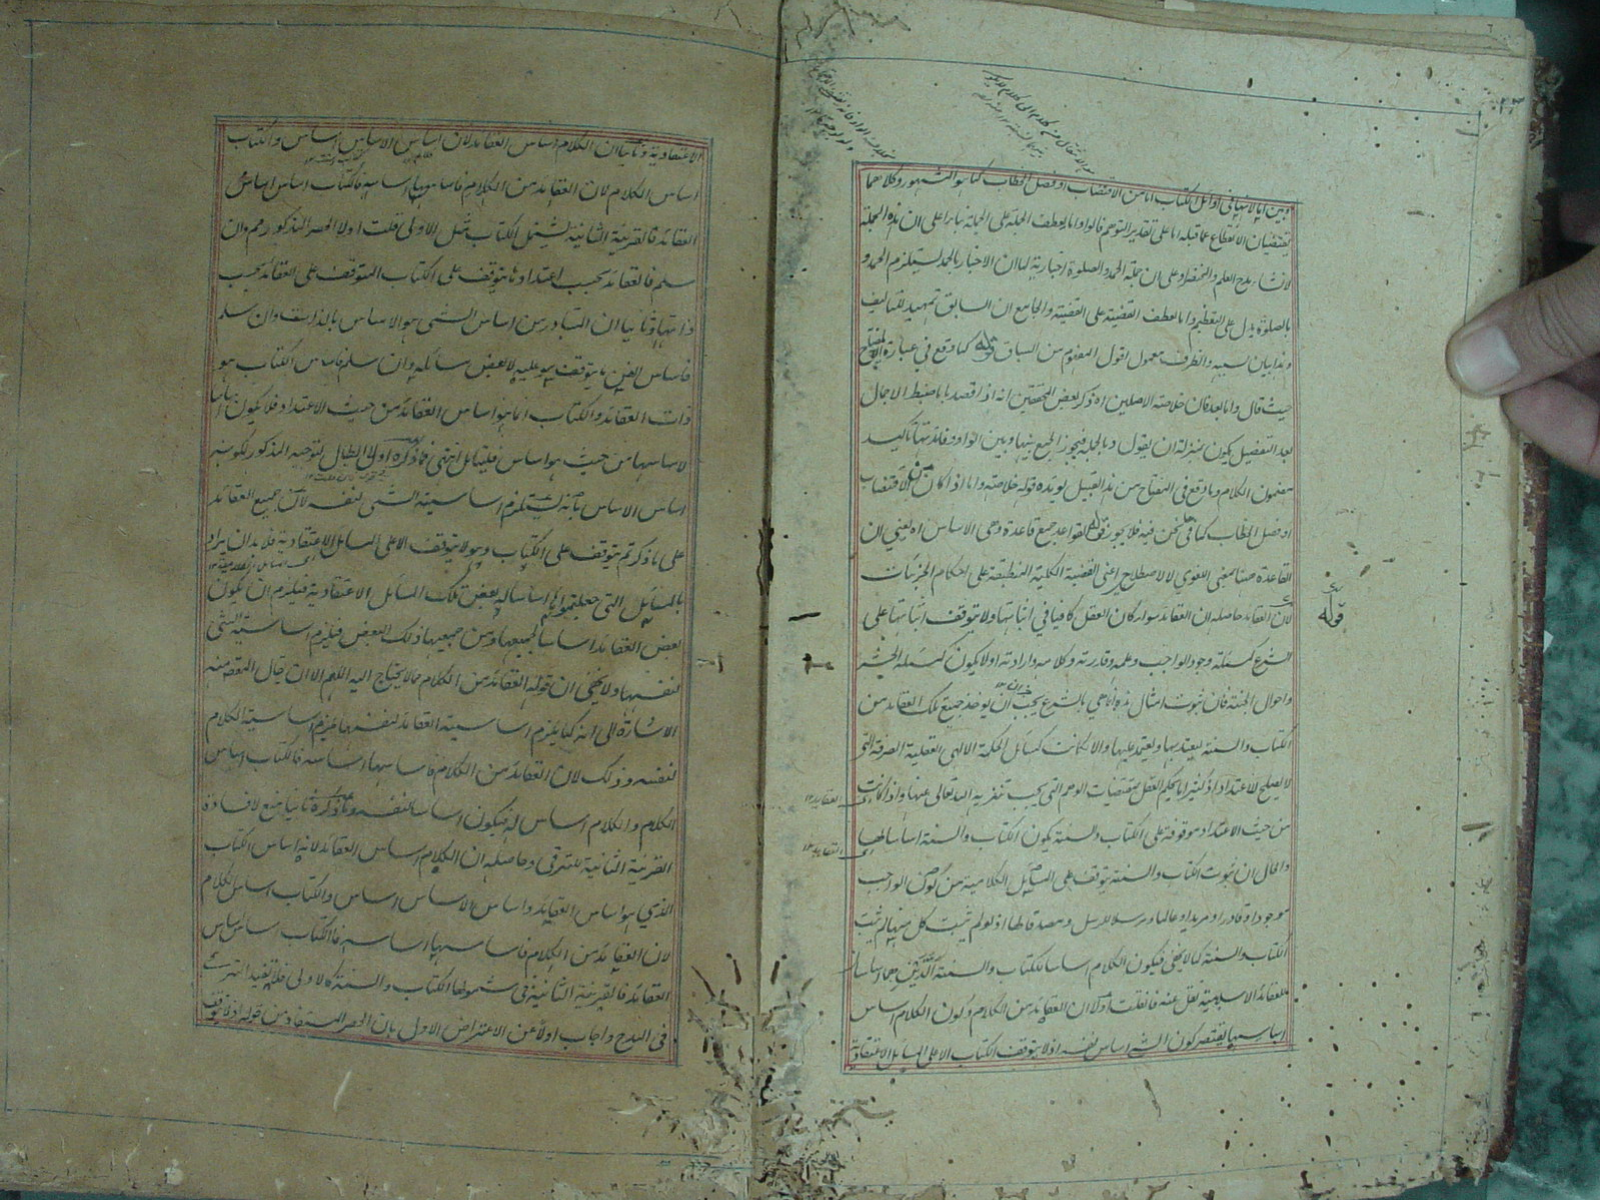 وبين اما لانها في اوائل الكتاب اما من الاقتضاب او فصل الخطاب كما هو المشهور وكلاهما
يقتضيان الانقطاع عما قبله اما على تقدير التوهم قالوا واما لعطف الجملة على الجملة بناء على ان هذه الجملة
لانشاء مدح العلم والمختصر او على ان جملة الحمد والصلوة اخبارية لما ان الاخبار بالحمد يستلزم الحمد و
بالصلوة يدل على التعظيم واما لعطف القصة على القصة والجامع ان السابق تمهيد للتاليف
وهذا بيان لسببه والظرف معمول اقول المفهوم من السياق قوله كما وقع في عبارة المفتاح
حيث قال واما بعد فان خلاصة الاصلين اه ذكر بعض المحققين انه اذا قصد باما ضبط الاجمال
بعد التفصيل يكون بمنزلة ان يقول وبالجملة فيجوز الجمع بينها وبين الواو وفائدتها تاكيد
مضمون الكلام وما وقع في المفتاح من هذا القبيل يؤيده قوله خلاصة واما اذا كان من الاقتضاب
او فصل الخطاب كما فيما نحن فيه فلا يجوز قوله القواعد جمع قاعدة وهي الاساس اه يعني ان
القاعدة ههنا بمعنى اللغوي لا الاصطلاحي اعني القضية الكلية المنطبقة على احكام الجزئيات
لان العقائد حاصله ان العقائد سواء كان العقل كافيا في اثباتها ولا يتوقف اثباتها على
الشرع كمسئلة وجود الواجب وعلمه وقدرته وكلامه وارادته اولا يكون كمسئلة الحشر
واحوال الجنة فان ثبوت امثال هذه انما هي بالشرع يجب ان يوخذ جميع تلك العقائد من
الكتاب والسنة ليعتد بها ويعتمد عليها والا كانت كمسائل الحكمة الالهي العقلية الصرفة التي
لا يصلح للاعتداد اذ كثيرا ما يحكم العقل بمقتضيات الوهم التي يجب تنزيه الله تعالى عنها واذا كانت
من حيث الاعتداد موقوفة على الكتاب والسنة يكون الكتاب والسنة اساسا لها
والحال ان ثبوت الكتاب والسنة يتوقف على المسائل الكلامية من كون الواجب
موجودا وقادرا ومريدا وعالما ومرسلا للرسل ومصدقا لها اذ لو لم يثبت كل منها لم يثبت
الكتاب والسنة كما لا يخفى فيكون الكلام اساسا للكتاب والسنة الذين هما اساسا
للعقائد الاسلامية نقل عنه فان قلت اولا ان العقائد من الكلام وكون الكلام اساس
اساسها يقتضي كون الشيء اساس نفسه اذ لا يتوقف الكتاب الا على المسائل الاعتقادية
قوله
الاعتقادية وثانيا ان الكلام اساس العقائد لان اساس الاساس اساس والكتاب
اساس الكلام لان العقائد من الكلام فاساسها اساسه فالكتاب اساس اساس
العقائد فالقرينة الثانية تشتمل الكتاب مثل الاولى قلت اولا الحصر المذكور مم وان
سلم فالعقائد بحسب اعتدادها يتوقف على الكتاب المتوقف على العقائد بحسب
ذاتها وثانيا ان المتبادر من اساس الشيء هو الاساس بالذات وان سلم
فاساس الفن ما يتوقف هو عليه لا بعض مسائله وان سلم فاساس الكتاب هو
ذات العقائد والكتاب انما هو اساس العقائد من حيث الاعتداد فلا يكون اساسا
لاساسها من حيث هو اساس فليتامل انتهى فما ذكره اولا ابطال لتوجيه المذكور لكونه
اساس الاساس بانه يستلزم اساسية الشيء لنفسه لان جميع العقائد
على ما ذكرتم يتوقف على الكتاب وهو لا يتوقف الا على المسائل الاعتقادية فلابد ان يراد
بالمسائل التي جعلتموها اساسا له بعض تلك المسائل الاعتقادية فيلزم ان يكون
بعض العقائد اساسا لجميعها ومن جميعها ذلك البعض فيلزم اساسية الشيء
لنفسها ولا يخفى ان قوله العقائد من الكلام مما لا يحتاج اليه اللهم الا ان يقال المقصود منه
الاشارة الى انه كما يلزم اساسية العقائد لنفسها يلزم اساسية الكلام
لنفسه وذلك لان العقائد من الكلام فاساسها اساسه فالكتاب اساس
الكلام والكلام اساس له فيكون اساسا لنفسه وما ذكره ثانيا منع لافادة
القرينة الثانية للترقي وحاصله ان الكلام اساس العقائد لانه اساس الكتاب
الذي هو اساس العقائد واساس الاساس اساس والكتاب اساس الكلام
لان العقائد من الكلام فاساسها اساسه فالكتاب اساس اساس
العقائد فالقرينة الثانية في شمولها الكتاب والسنة كالاولى فلا تفيد الترقي
في المدح واجاب اولا عن الاعتراض الاول بان الحصر المستفاد من قوله اذ لا يتوقف